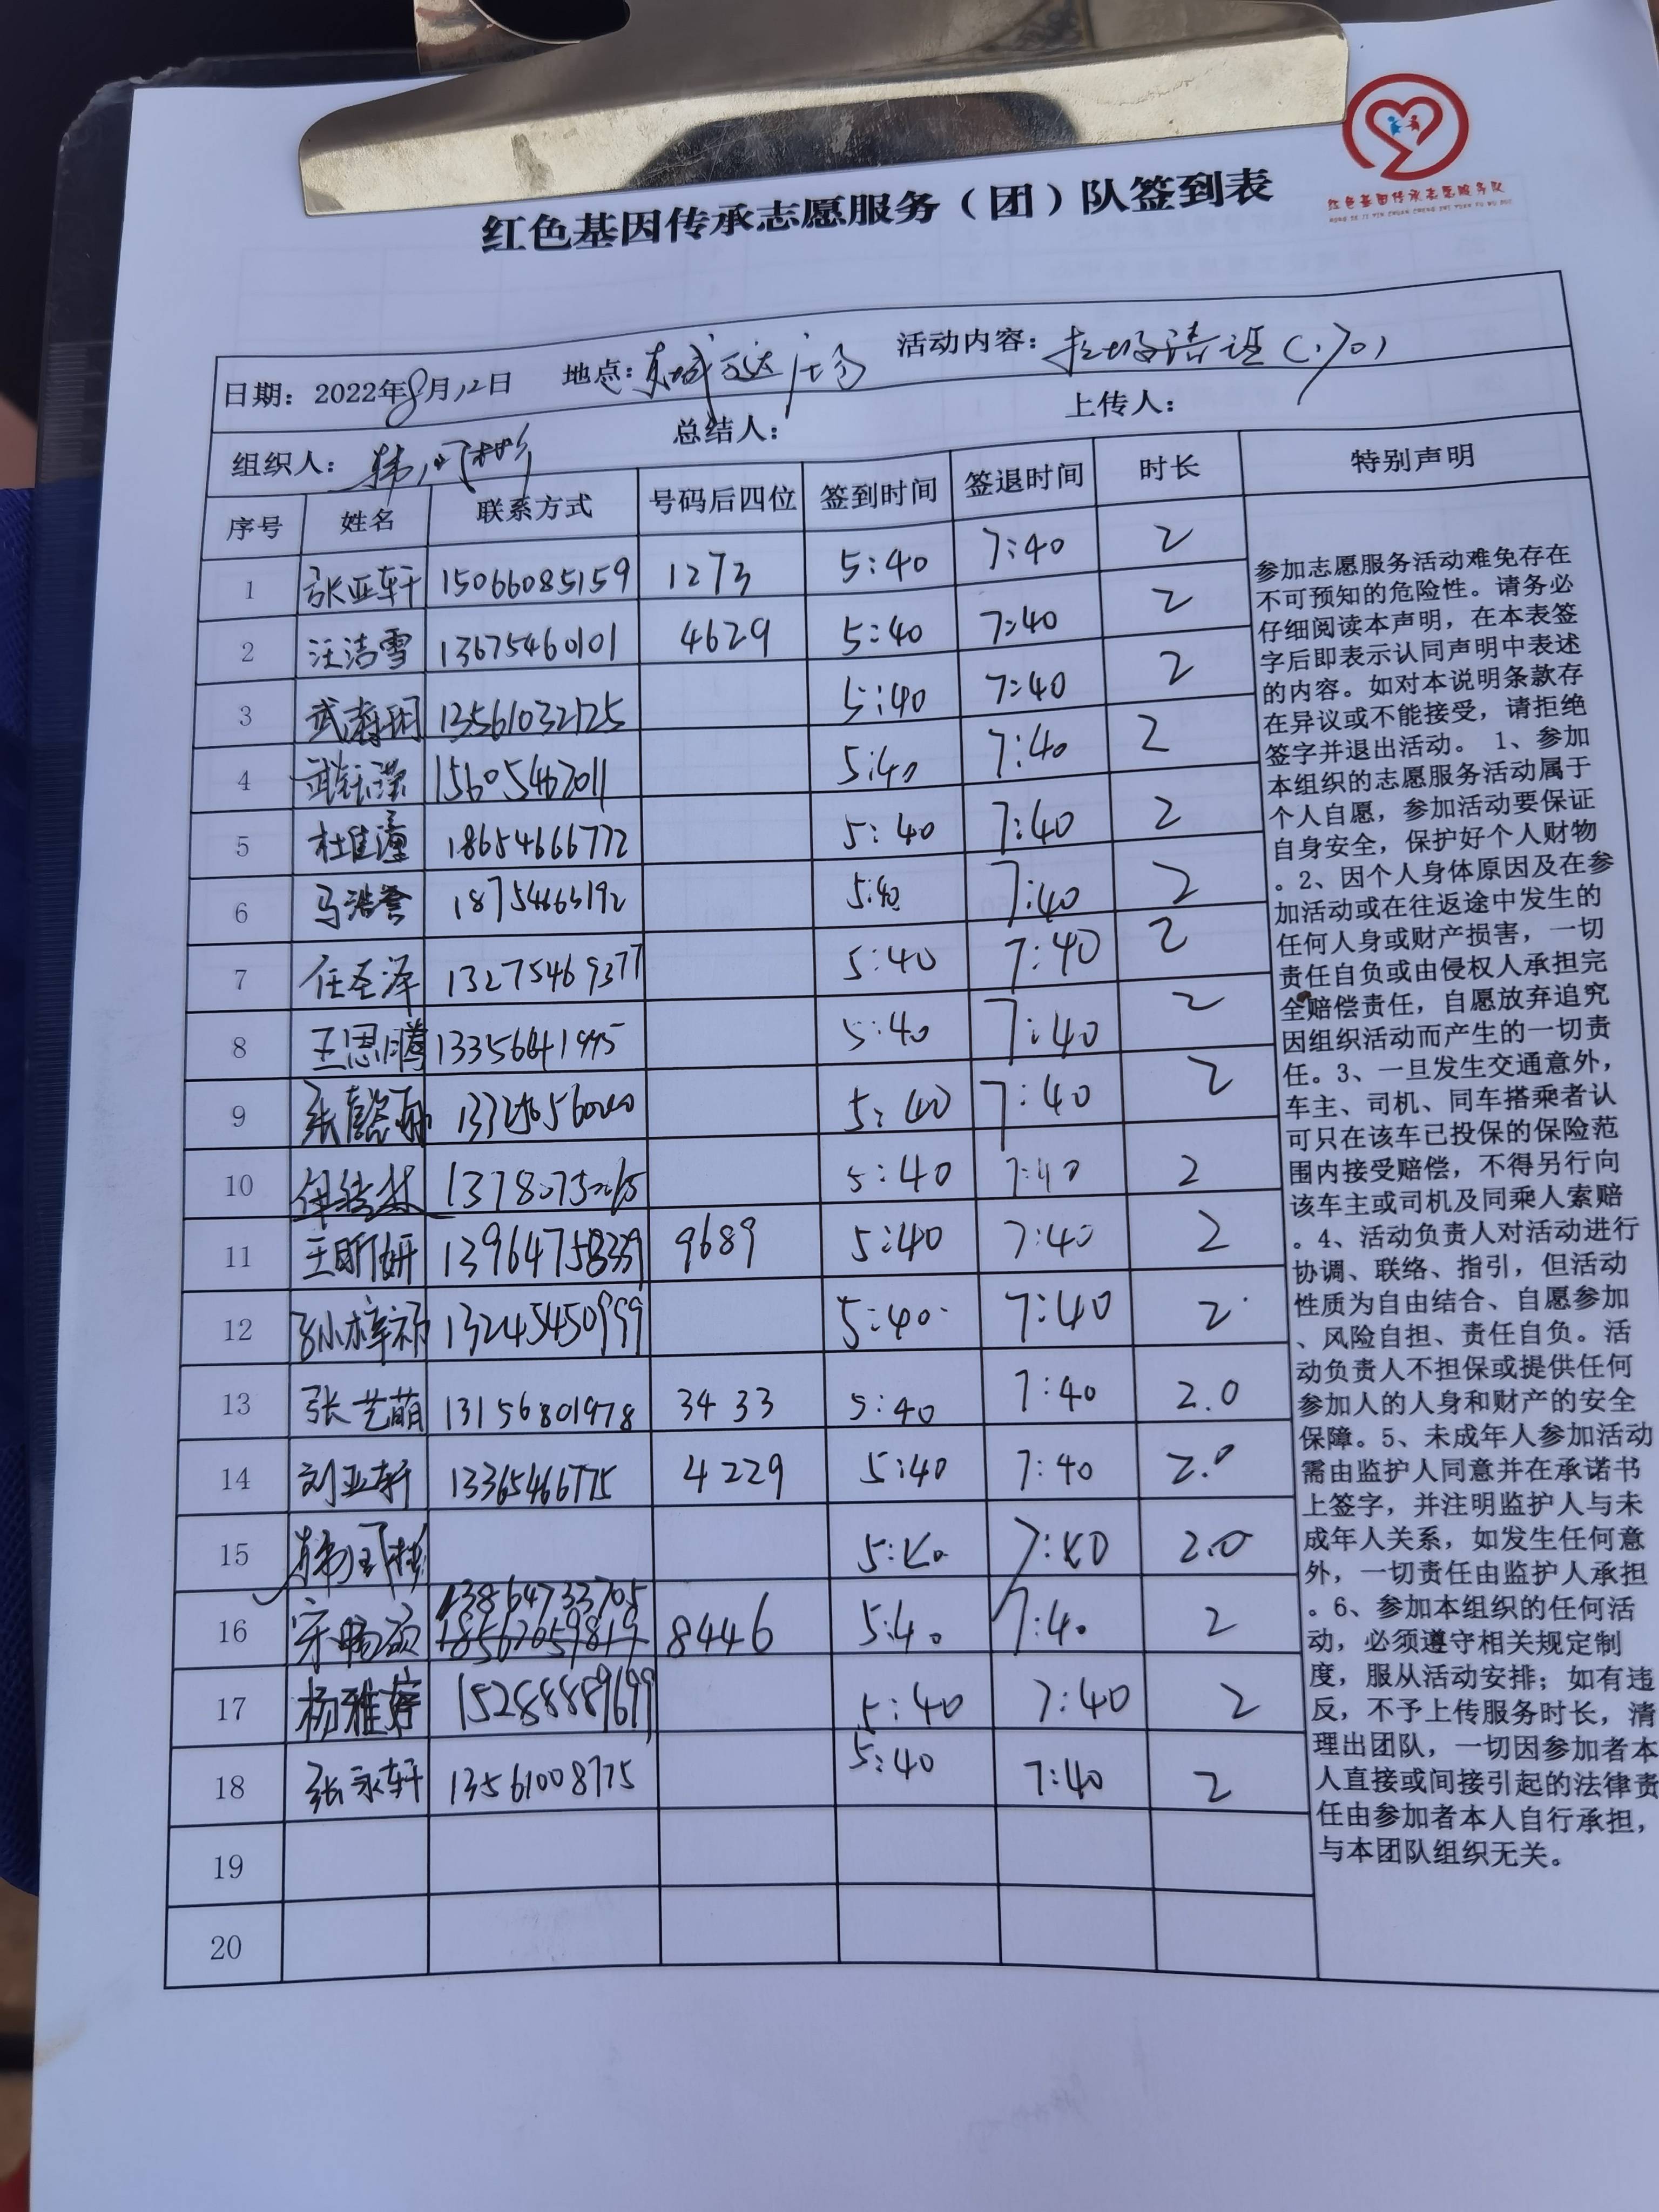 红色基因传承志愿服务队
HONG SE JI YIN CHUAN CHENG ZHI YUAN FU WU DUI
红色基因传承志愿服务（团）队签到表
日期：2022年8月12日 地点：东城万达广场 活动内容：
组织人： 总结人： 上传人：
序号 姓名 联系方式 号码后四位 签到时间 签退时间 时长 特别声明
1 张亚轩 15066085159 1273 5:40 7:40 2
2 汪洁雪 13675460101 4629 5:40 7:40 2
3 13561032125 5:40 7:40 2
4 15605467011 5:40 7:40 2
5 杜佳潼 18654666772 5:40 7:40 2
6 马浩誉 5:40 7:40 2
7 任圣泽 13275469377 5:40 7:40 2
8 王思腾 5:40 7:40 2
9 5:40 7:40 2
10 5:40 7:40 2
11 王昕妍 9689 5:40 7:40 2
12 孙梓祁 5:40 7:40 2
13 张艺萌 13156801978 3433 5:40 7:40 2.0
14 刘亚轩 13365466775 4229 5:40 7:40 2.0
15 5:40 7:40 2.0
16 宋 13864733705 8446 5:40 7:40 2
17 杨雅婷 15288889699 5:40 7:40 2
18 张永轩 13561008775 5:40 7:40 2
19
20
参加志愿服务活动难免存在
不可预知的危险性。请务必
仔细阅读本声明，在本表签
字后即表示认同声明中表述
的内容。如对本说明条款存
在异议或不能接受，请拒绝
签字并退出活动。 1、参加
本组织的志愿服务活动属于
个人自愿，参加活动要保证
自身安全，保护好个人财物
。2、因个人身体原因及在参
加活动或在往返途中发生的
任何人身或财产损害，一切
责任自负或由侵权人承担完
全赔偿责任，自愿放弃追究
因组织活动而产生的一切责
任。3、一旦发生交通意外，
车主、司机、同车搭乘者认
可只在该车已投保的保险范
围内接受赔偿，不得另行向
该车主或司机及同乘人索赔
。4、活动负责人对活动进行
协调、联络、指引，但活动
性质为自由结合、自愿参加
、风险自担、责任自负。活
动负责人不担保或提供任何
参加人的人身和财产的安全
保障。5、未成年人参加活动
需由监护人同意并在承诺书
上签字，并注明监护人与未
成年人关系，如发生任何意
外，一切责任由监护人承担
。6、参加本组织的任何活
动，必须遵守相关规定制
度，服从活动安排；如有违
反，不予上传服务时长，清
理出团队，一切因参加者本
人直接或间接引起的法律责
任由参加者本人自行承担，
与本团队组织无关。